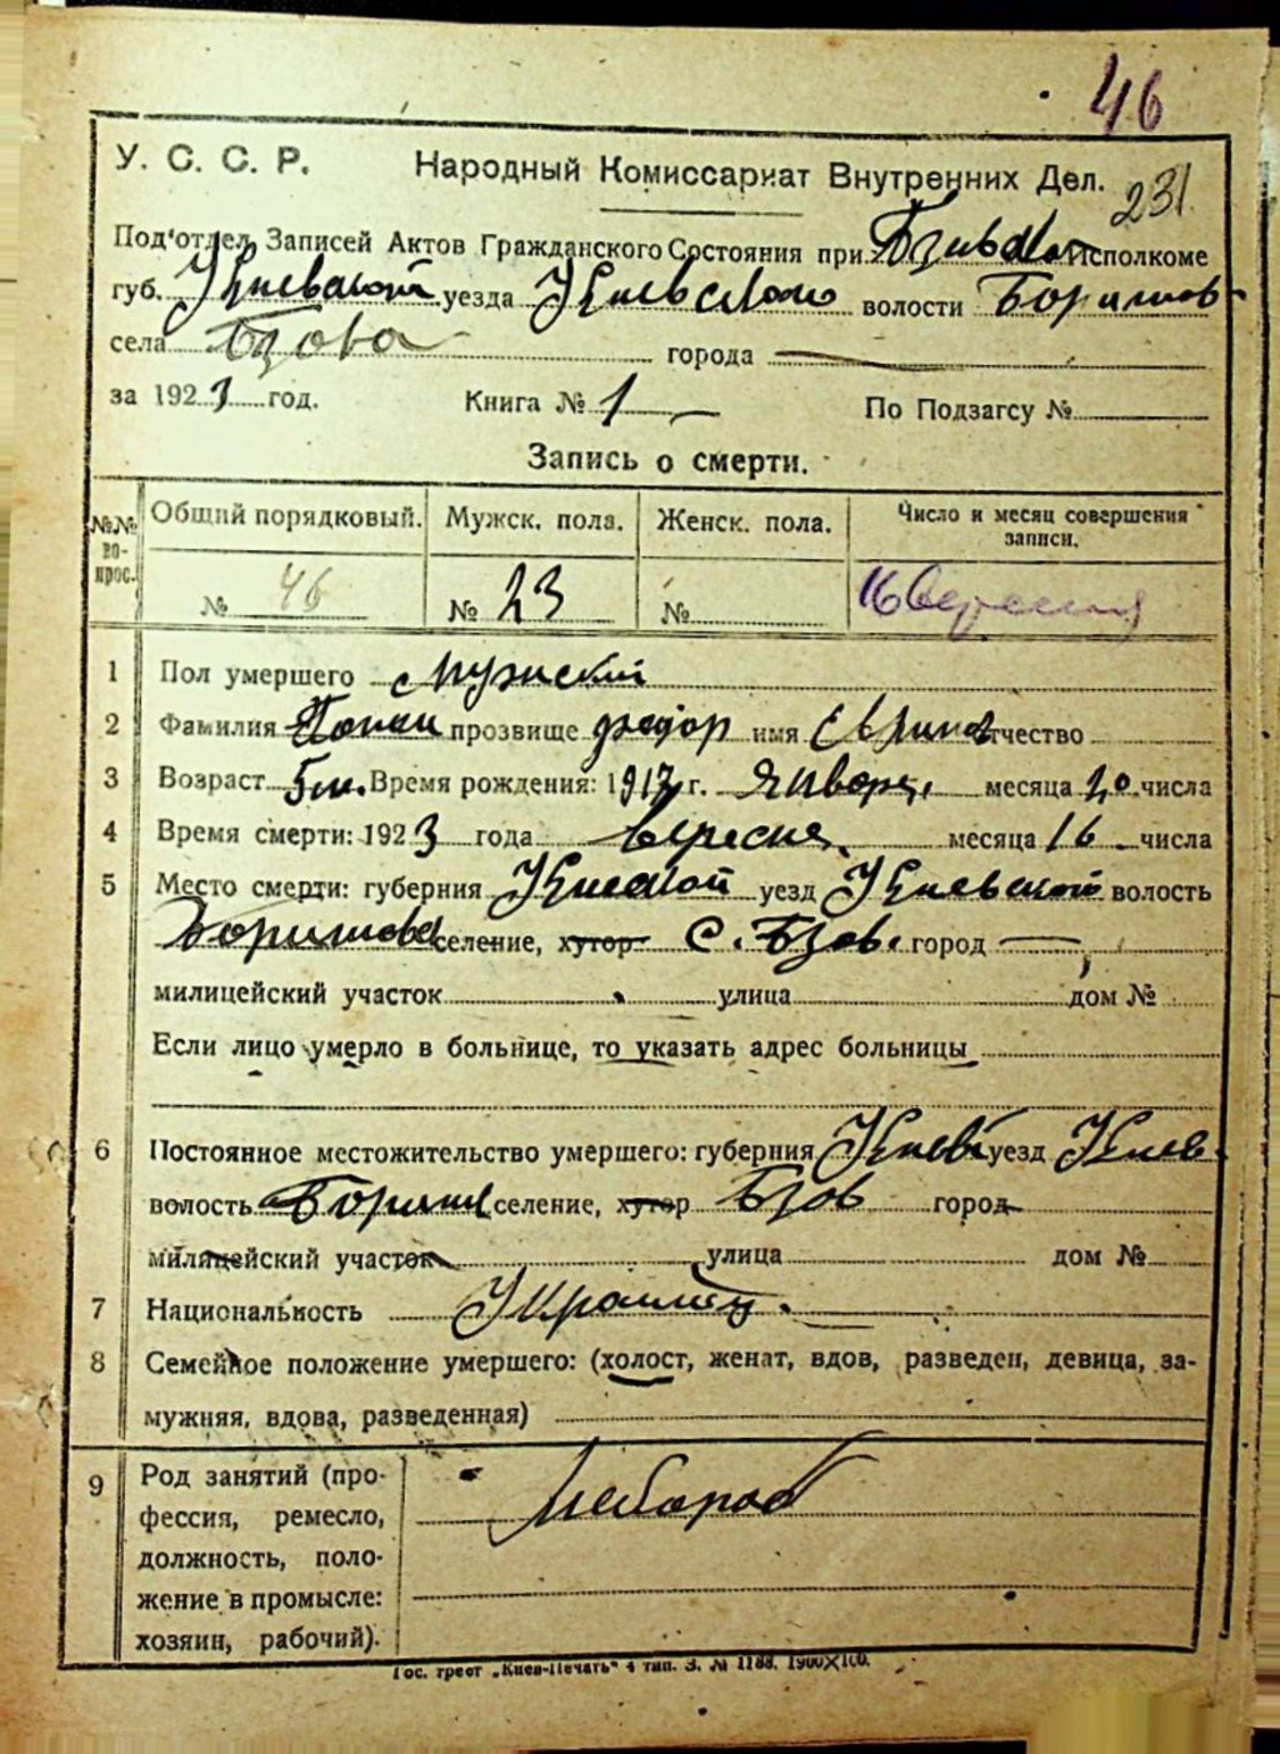 46
У. С. С. Р. Народный Комиссариат Внутренних Дел. 231
Под'отдел Записей Актов Гражданского Состояния при Исполкоме
губ. Киевской уезда Киевского волости
села Бзова города
за 1923 год. Книга № 1 По Подзагсу №
Запись о смерти.
№№ вопрос. Общий порядковый. Мужск. пола. Женск. пола. Число и месяц совершения записи.
№ 46 № 23 № 16 вересня
1 Пол умершего Мужской
2 Фамилия прозвище Федор имя отчество
3 Возраст Время рождения: 1917 г. Января месяца 20 числа
4 Время смерти: 1923 года вересня месяца 16 числа
5 Место смерти: губерния уезд Киевской волость
селение, хутор С. Бзов. город —
милицейский участок улица дом №
Если лицо умерло в больнице, то указать адрес больницы
6 Постоянное местожительство умершего: губерния уезд Киев
волость селение, хутор Бзов город
милицейский участок улица дом №
7 Национальность
8 Семейное положение умершего: (холост, женат, вдов, разведен, девица, за-
мужняя, вдова, разведенная)
9 Род занятий (про-
фессия, ремесло,
должность, поло-
жение в промысле:
хозяин, рабочий).
Гос. трест „Киев-Печать" 4 тип. З. № 1188. 1900×100.